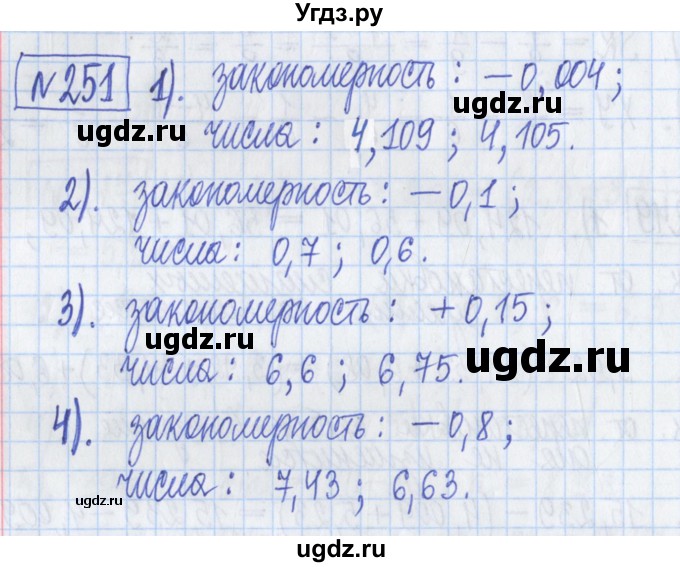 Угдз.ру
№251 1). закономерность: −0,004;
ugdz.ru ugdz.ru
числа: 4,109; 4,105.
2). закономерность: −0,1;
числа: 0,7; 0,6.
3). закономерность: +0,15;
ugdz.ru ugdz.ru
числа: 6,6; 6,75.
4). закономерность: −0,8;
числа: 7,43; 6,63.
ugdz.ru ugdz.ru
ugdz.ru